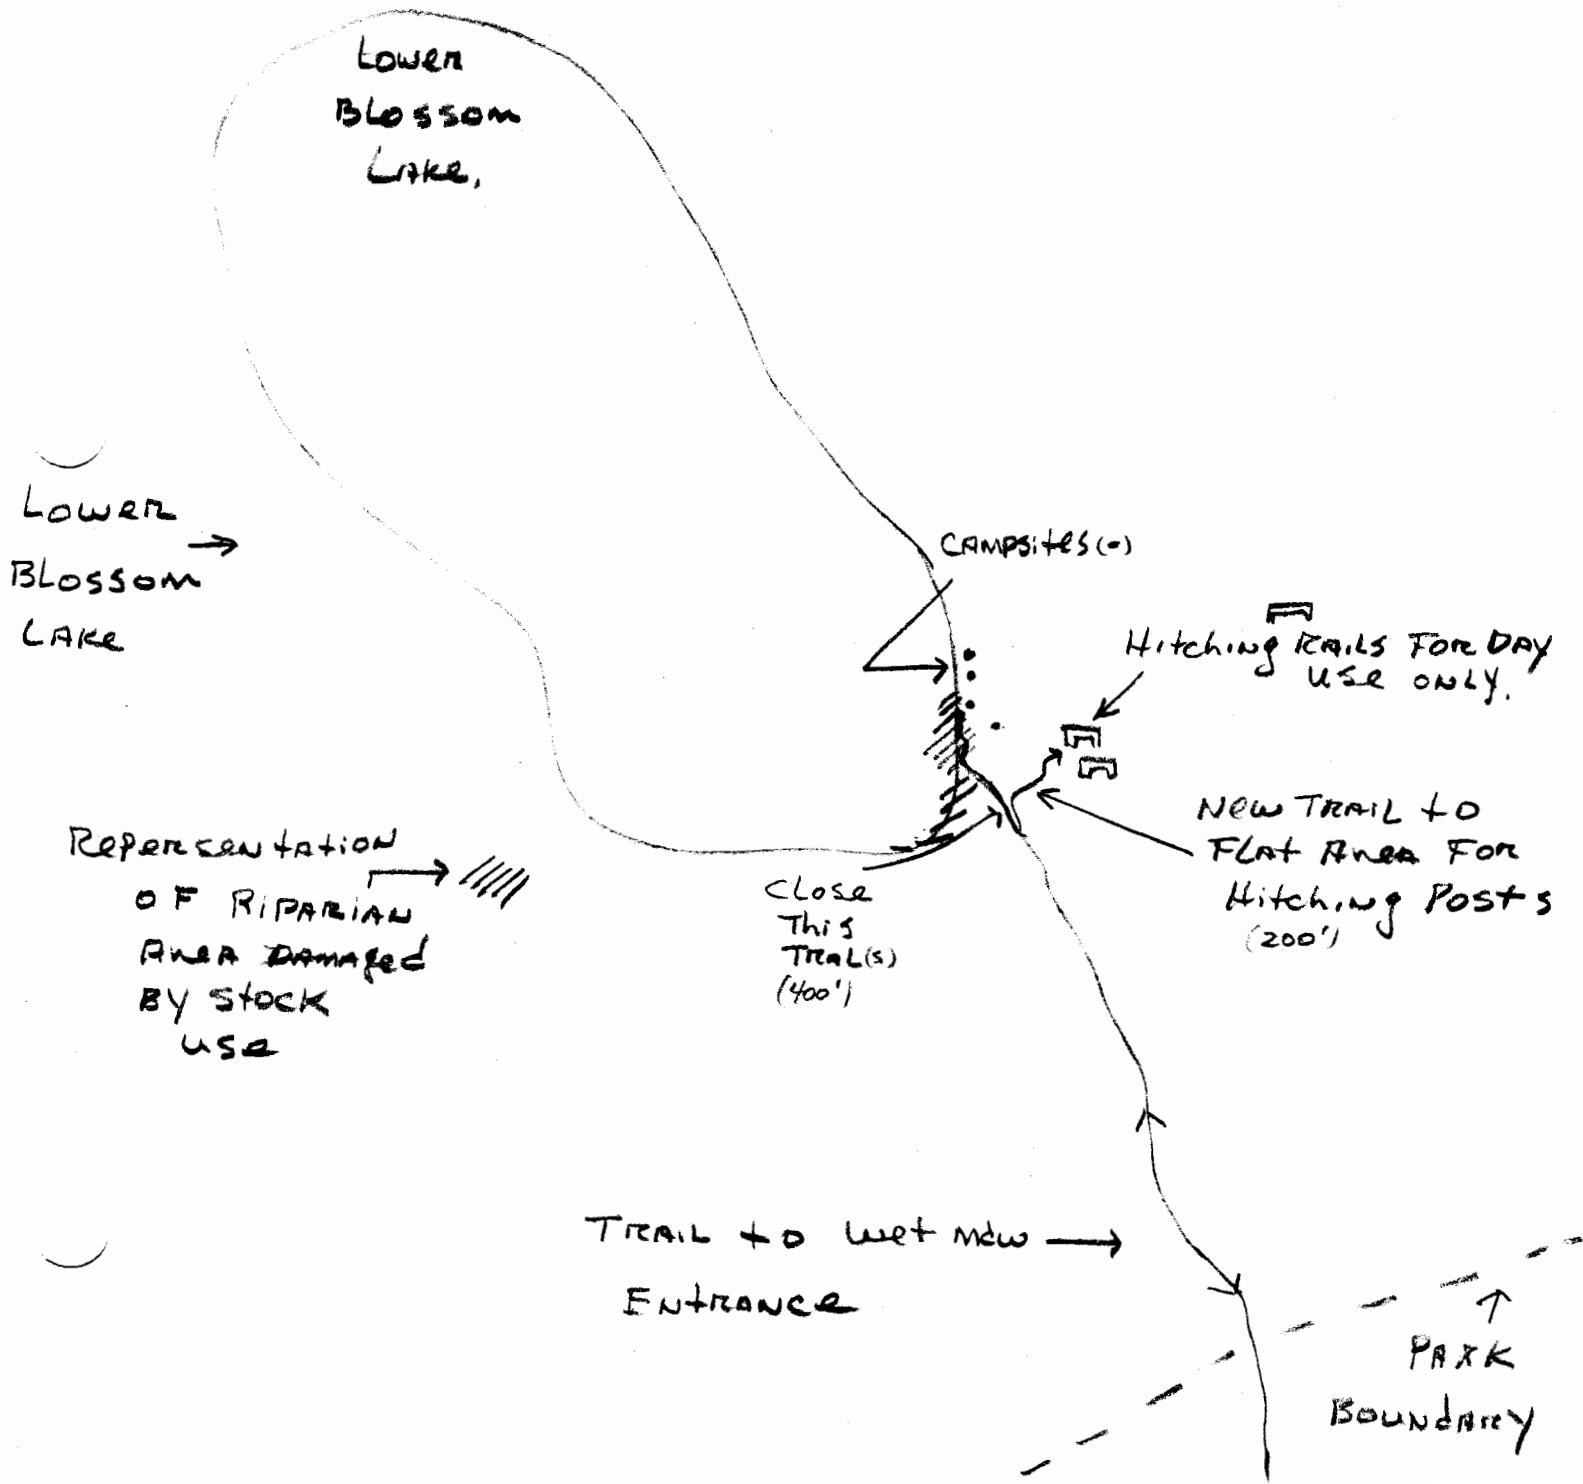 Lower
Blossom
Lake,
Lower
Blossom
Lake
Campsites (•)
Hitching Rails For Day
Use Only.
New Trail to
Flat Area For
Hitching Posts
(200')
Repersentation
OF Riparian
Area Damaged
By Stock
Use
Close
This
Tral(s)
(400')
Trail to Wet Mdw
Entrance
Park
Boundary